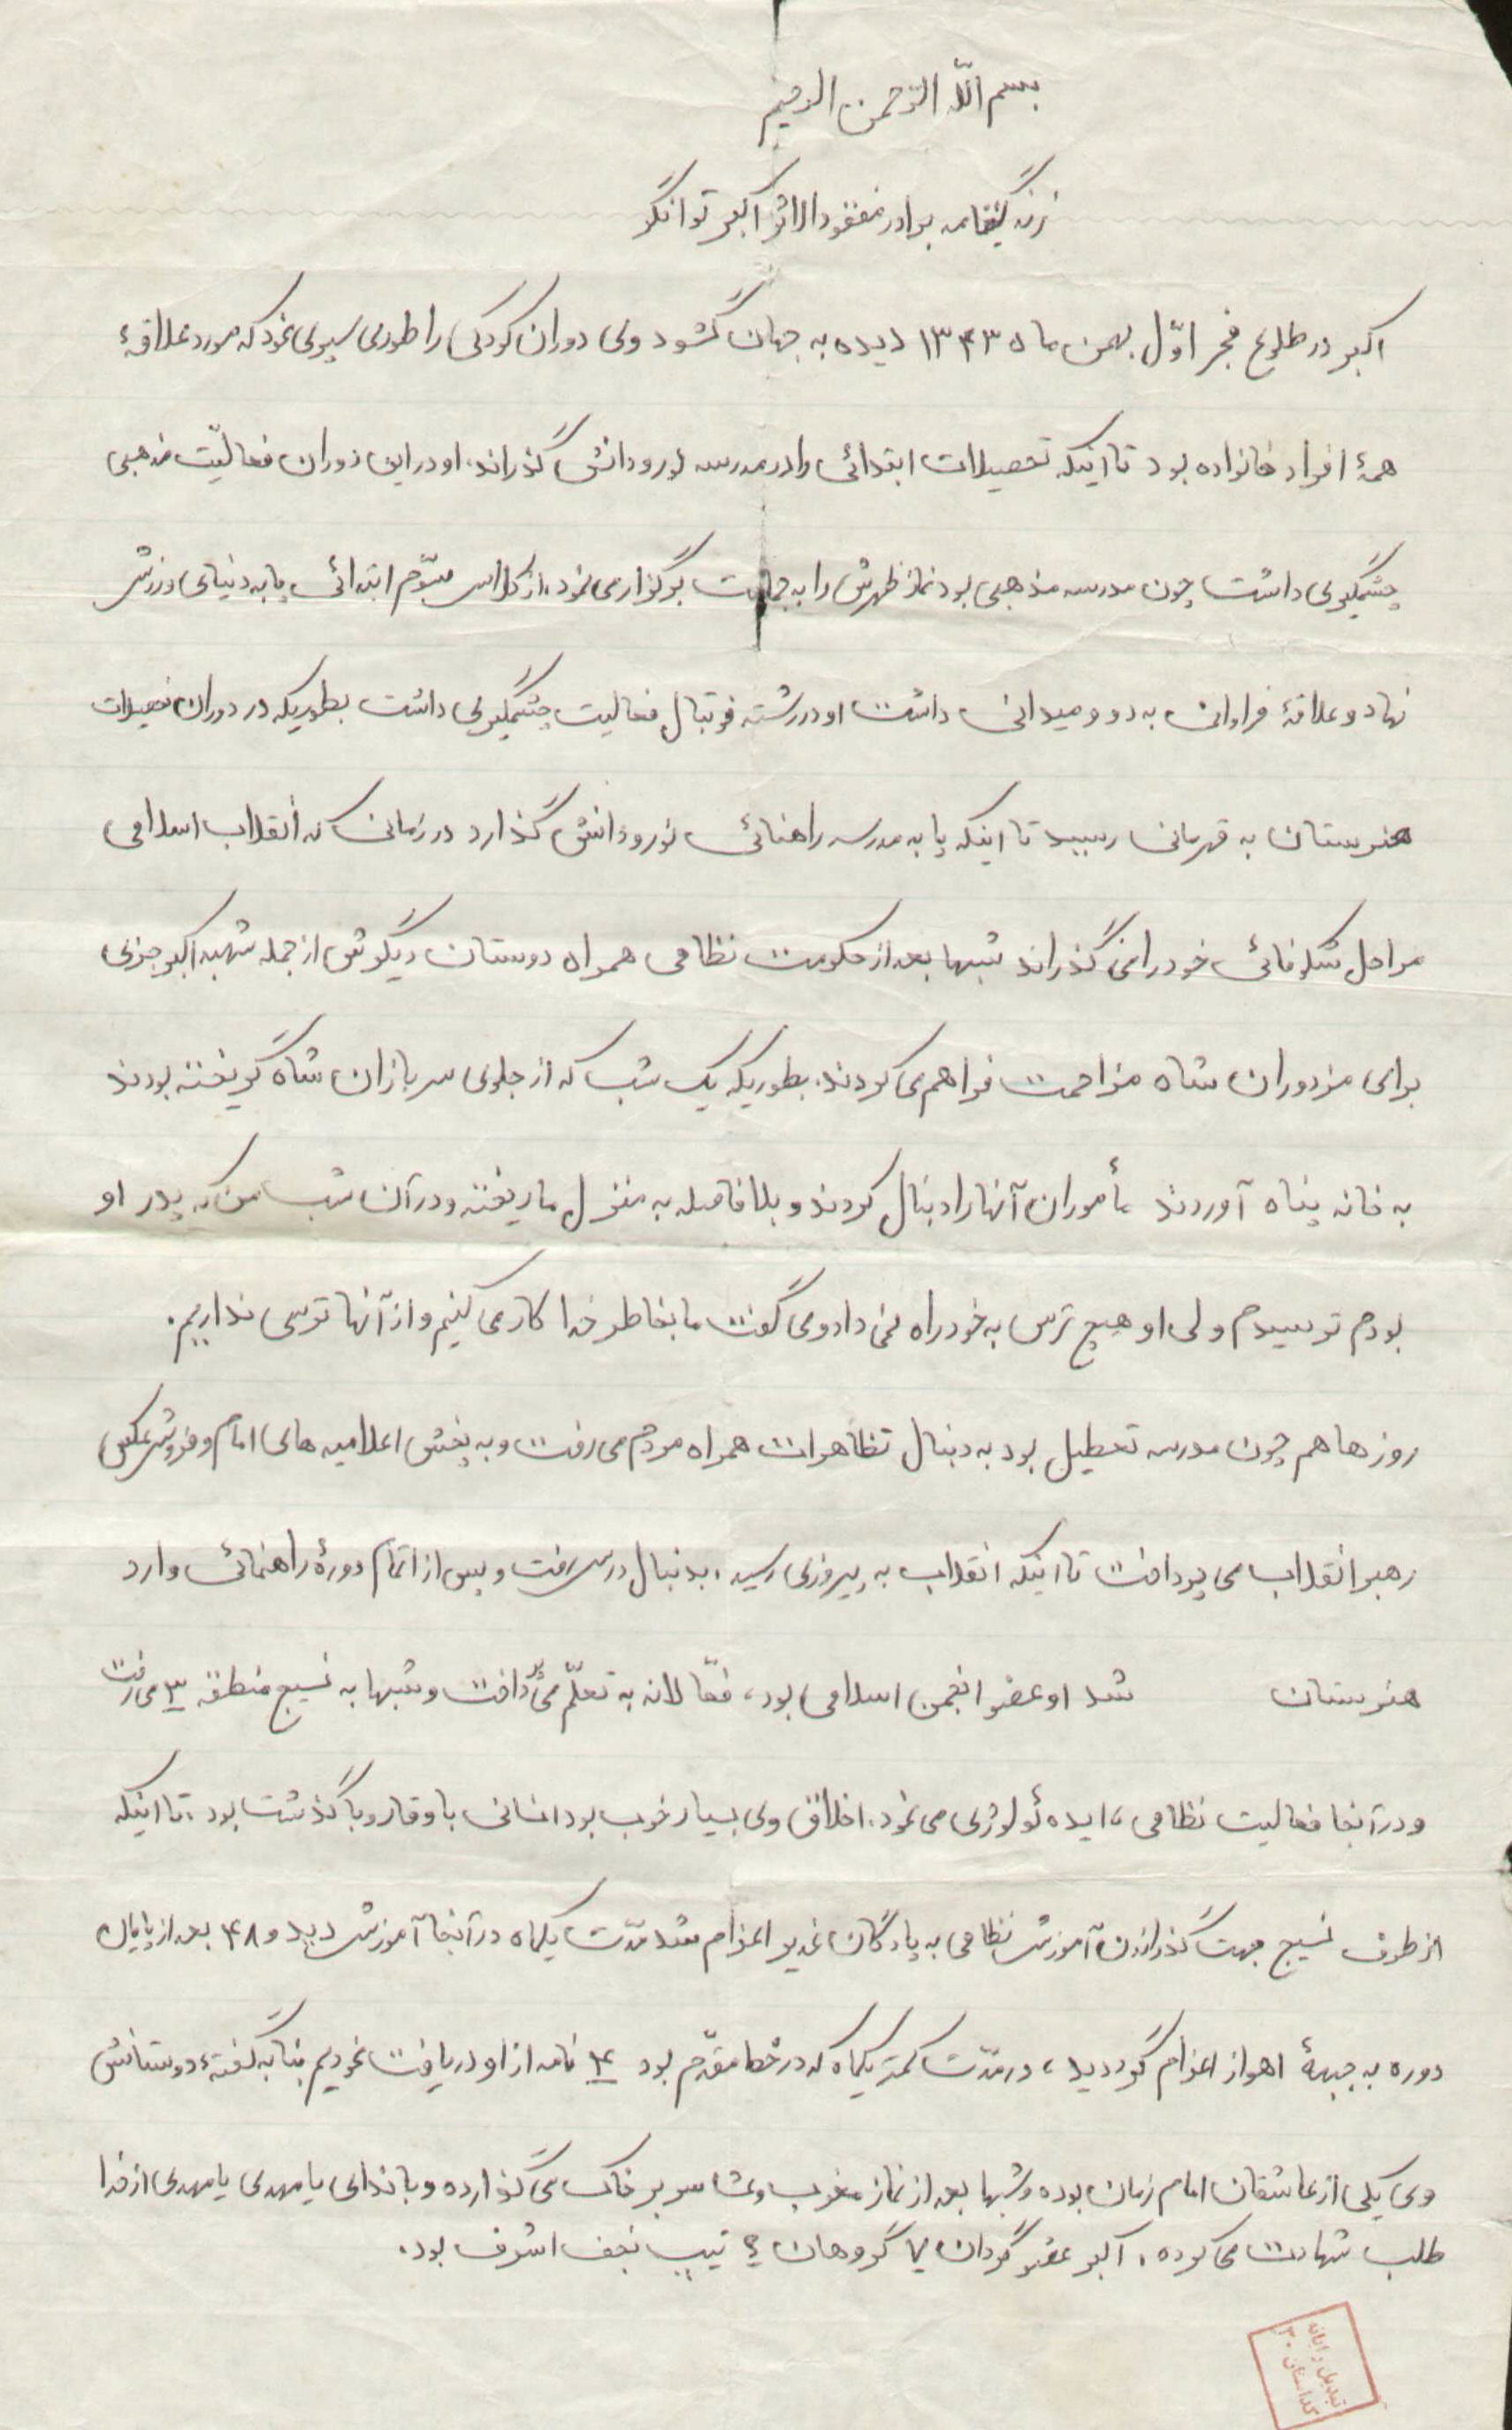 بسم اللّه الرّحمن الرحیم
زندگینامه برادر مفقودالاثر اکبر توانگر
اکبر در طلوع فجر اوّل بهمن ماه ۱۳۴۳ دیده به جهان گشود وی دوران کودکی را طوری سپری نمود که مورد علاقهٔ
همهٔ افراد خانواده بود تا اینکه تحصیلات ابتدائی را در مدرسه نور و دانش گذراند. او در این دوران فعالیّت مذهبی
چشمگیری داشت چون مدرسه مذهبی بود نماز ظهرش را به جماعت برگزار می نمود، از کلاس سوّم ابتدائی پا به دنیای ورزش
نهاد و علاقهٔ فراوانی به دو و میدانی داشت او در رشته فوتبال فعالیت چشمگیری داشت بطوریکه در دوران تحصیلات
هنرستان به قهرمانی رسید تا اینکه پا به مدرسه راهنمائی نور و دانش گذارد در زمانی که انقلاب اسلامی
مراحل شکوفائی خود را می گذراند شبها بعد از حکومت نظامی همراه دوستان دیگرش از جمله شهید اکبر جزی
برای مزدوران شاه مزاحمت فراهم می کردند. بطوریکه یک شب که از جلوی سربازان شاه گریخته بودند
به خانه پناه آوردند مأموران آنها را دنبال کردند و بلافاصله به منزل ما ریخته و در آن شب من که پدر او
بودم ترسیدم ولی او هیچ ترس به خود راه نمی داد و می گفت ما بخاطر خدا کار می کنیم و از آنها ترسی نداریم.
روزها هم چون مدرسه تعطیل بود به دنبال تظاهرات همراه مردم می رفت و به پخش اعلامیه های امام و فروش عکس
رهبر انقلاب می پرداخت تا اینکه انقلاب به پیروزی رسید. بدنبال درس رفت و پس از اتمام دورهٔ راهنمائی وارد
هنرستان شد او عضو انجمن اسلامی بود، فعّالانه به تعلّم می پرداخت و شبها به بسیج منطقه ۳ می رفت
و در آنجا فعالیت نظامی، ایده ئولوژی می نمود. اخلاق وی بسیار خوب بود انسانی با وقار و با گذشت بود. تا اینکه
از طرف بسیج جهت گذراندن آموزش نظامی به پادگان غدیر اعزام شد مدّت یکماه در آنجا آموزش دید و ۴۸ بعد از پایان
دوره به جبههٔ اهواز اعزام گردید، در مدّت کمتر یکماه که در خط مقدّم بود ۴ نامه از او دریافت نمودیم بنا به گفتهٔ دوستانش
وی یکی از عاشقان امام زمان بوده و شبها بعد از نماز مغرب و عشا سر بر خاک می گذارده و با ندای یا مهدی یا مهدی از خدا
طلب شهادت می کرده. اکبر عضو گردان ۷ گروهان تیپ نجف اشرف بود.
تبدیل رایانه
۳۰